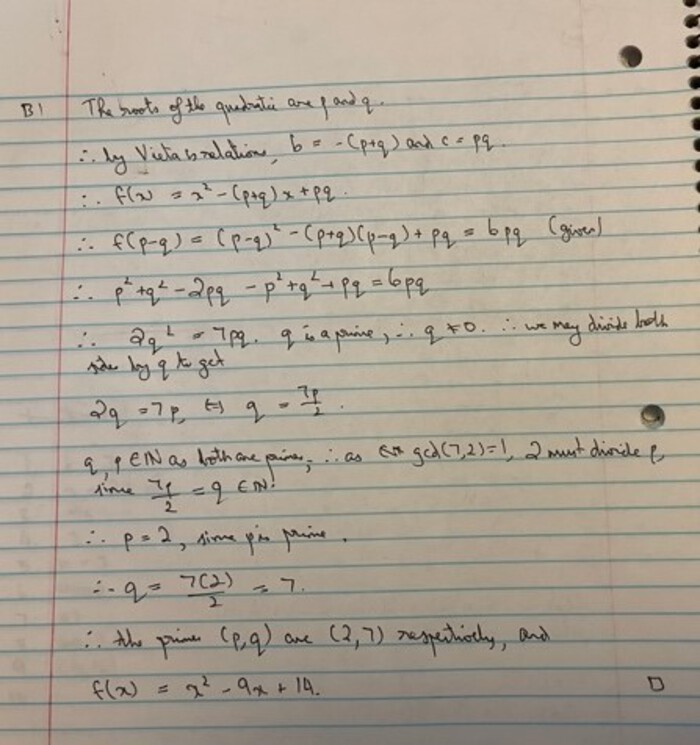 B1 The roots of the quadratic are p and q.
∴ by Vieta's relation, b = -(p+q) and c = pq.
∴ f(x) = x² - (p+q)x + pq.
∴ f(p-q) = (p-q)² - (p+q)(p-q) + pq = 6pq (given)
∴ p² + q² - 2pq - p² + q² + pq = 6pq
∴ 2q² = 7pq. q is a prime, ∴ q ≠ 0. ∴ we may divide both
side by q to get
2q = 7p, ⇔ q = 7p/2.
q, p ∈ ℕ as both are primes, ∴ as gcd(7,2)=1, 2 must divide p,
since 7p/2 = q ∈ ℕ.
∴ p = 2, since p is prime.
∴ q = 7(2)/2 = 7.
∴ the primes (p,q) are (2,7) respectively, and
f(x) = x² - 9x + 14. □